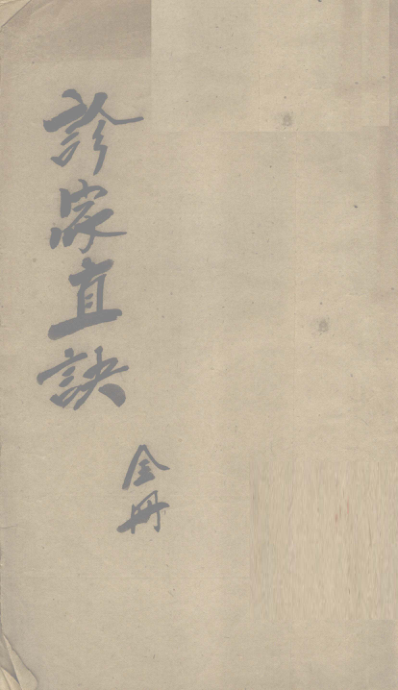 診家直訣
全冊